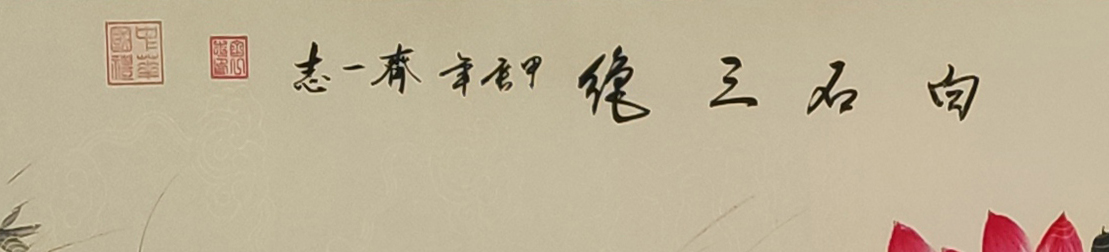 白石三绝
甲辰年齊一志
中華國禮